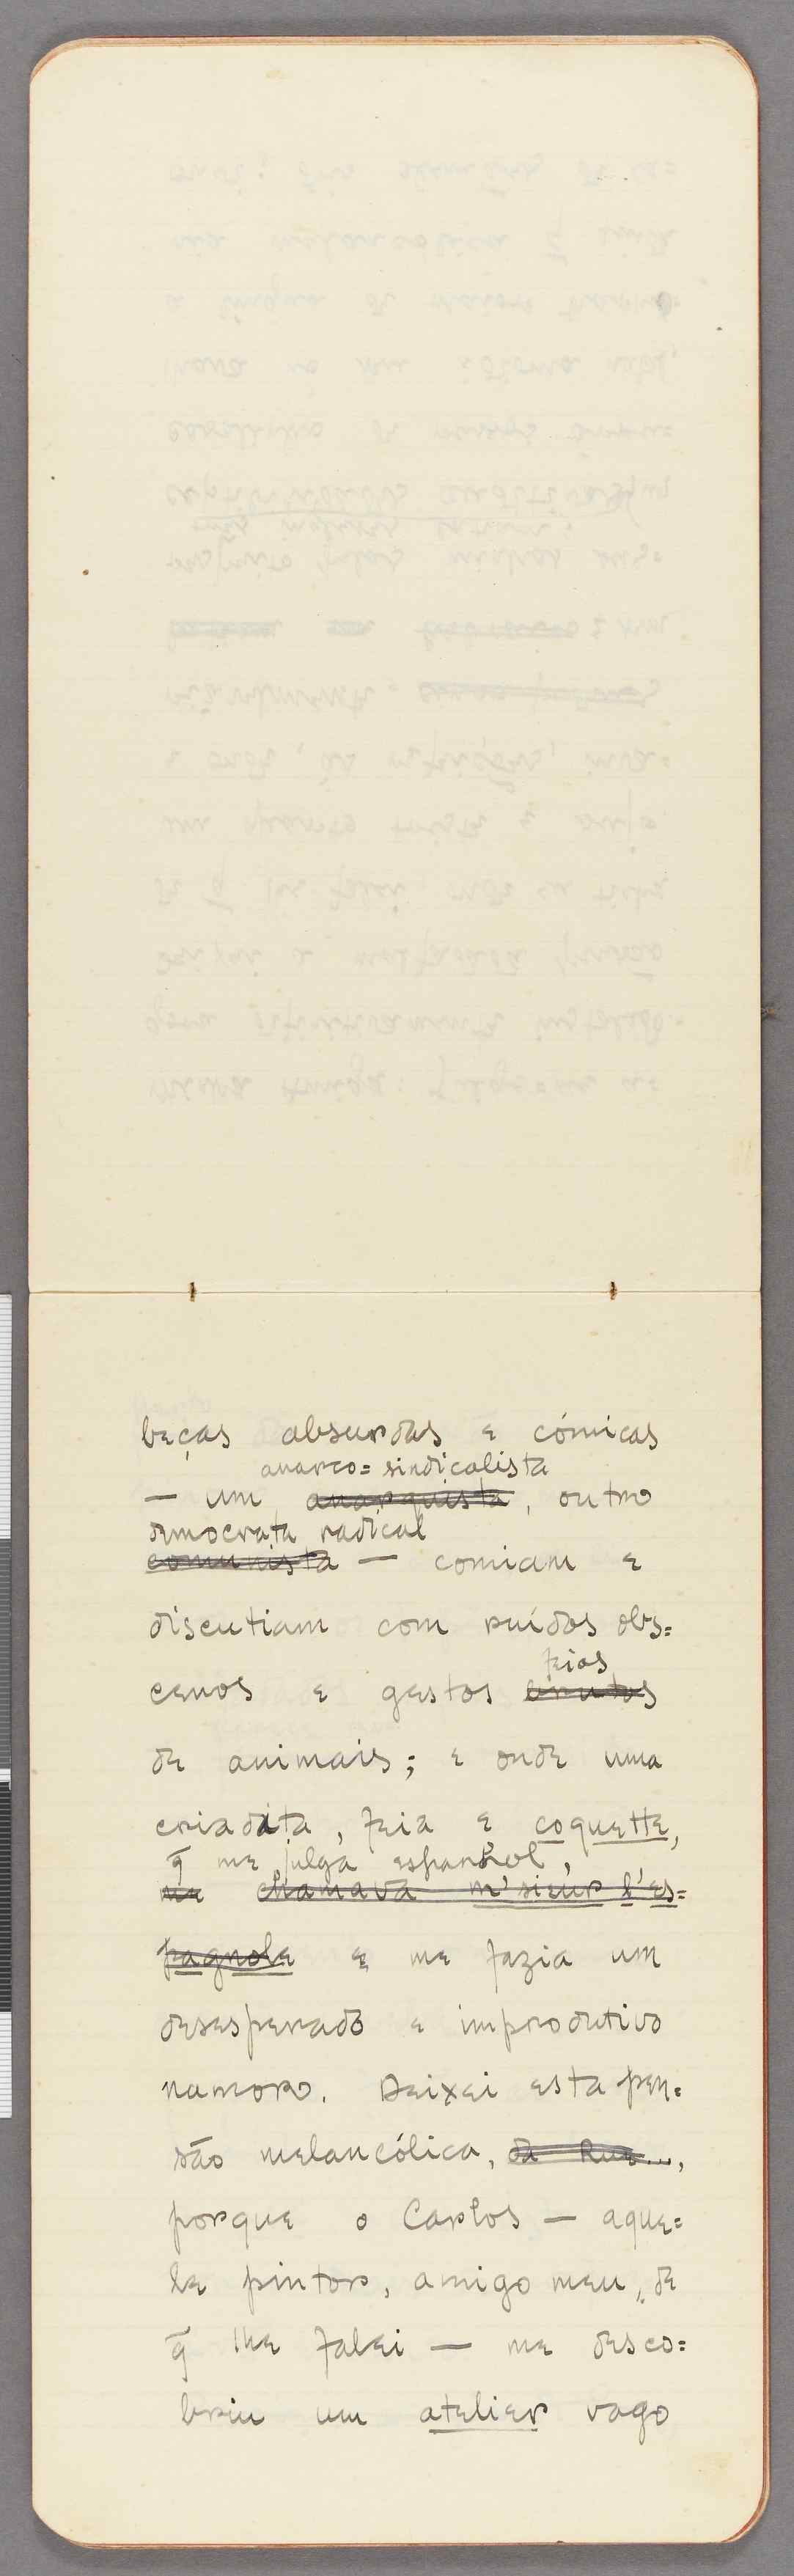 beças absurdas e cómicas
anarco=sindicalista
— um anarquista, outro
democrata radical
comunista — comiam e
discutiam com ruídos obs=
feios
cenos e gestos brutos
de animais; e onde uma
criadita, feia e coquette,
q̃ me julga espanhol,
me chamava m'sieur l'es=
pagnole e me fazia um
desesperado e improdutivo
namoro. Deixei esta pen=
são melancólica, da Rue...,
porque o Carlos — aque=
le pintor, amigo meu, de
q̃ lhe falei — me desco=
briu um atelier vago